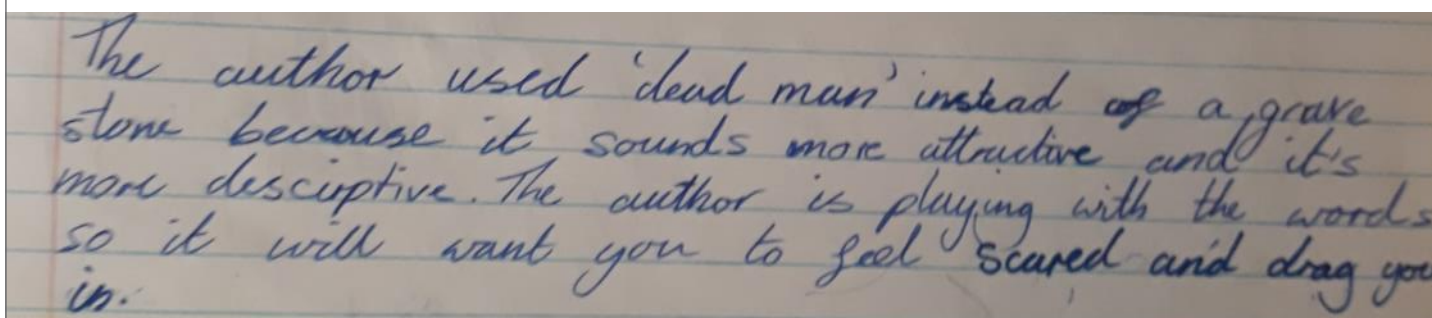 The author used 'dead man' instead of a grave
stone because it sounds more attractive and it's
more descirptive. The author is playing with the words
so it will want you to feel scared and drag you
in.